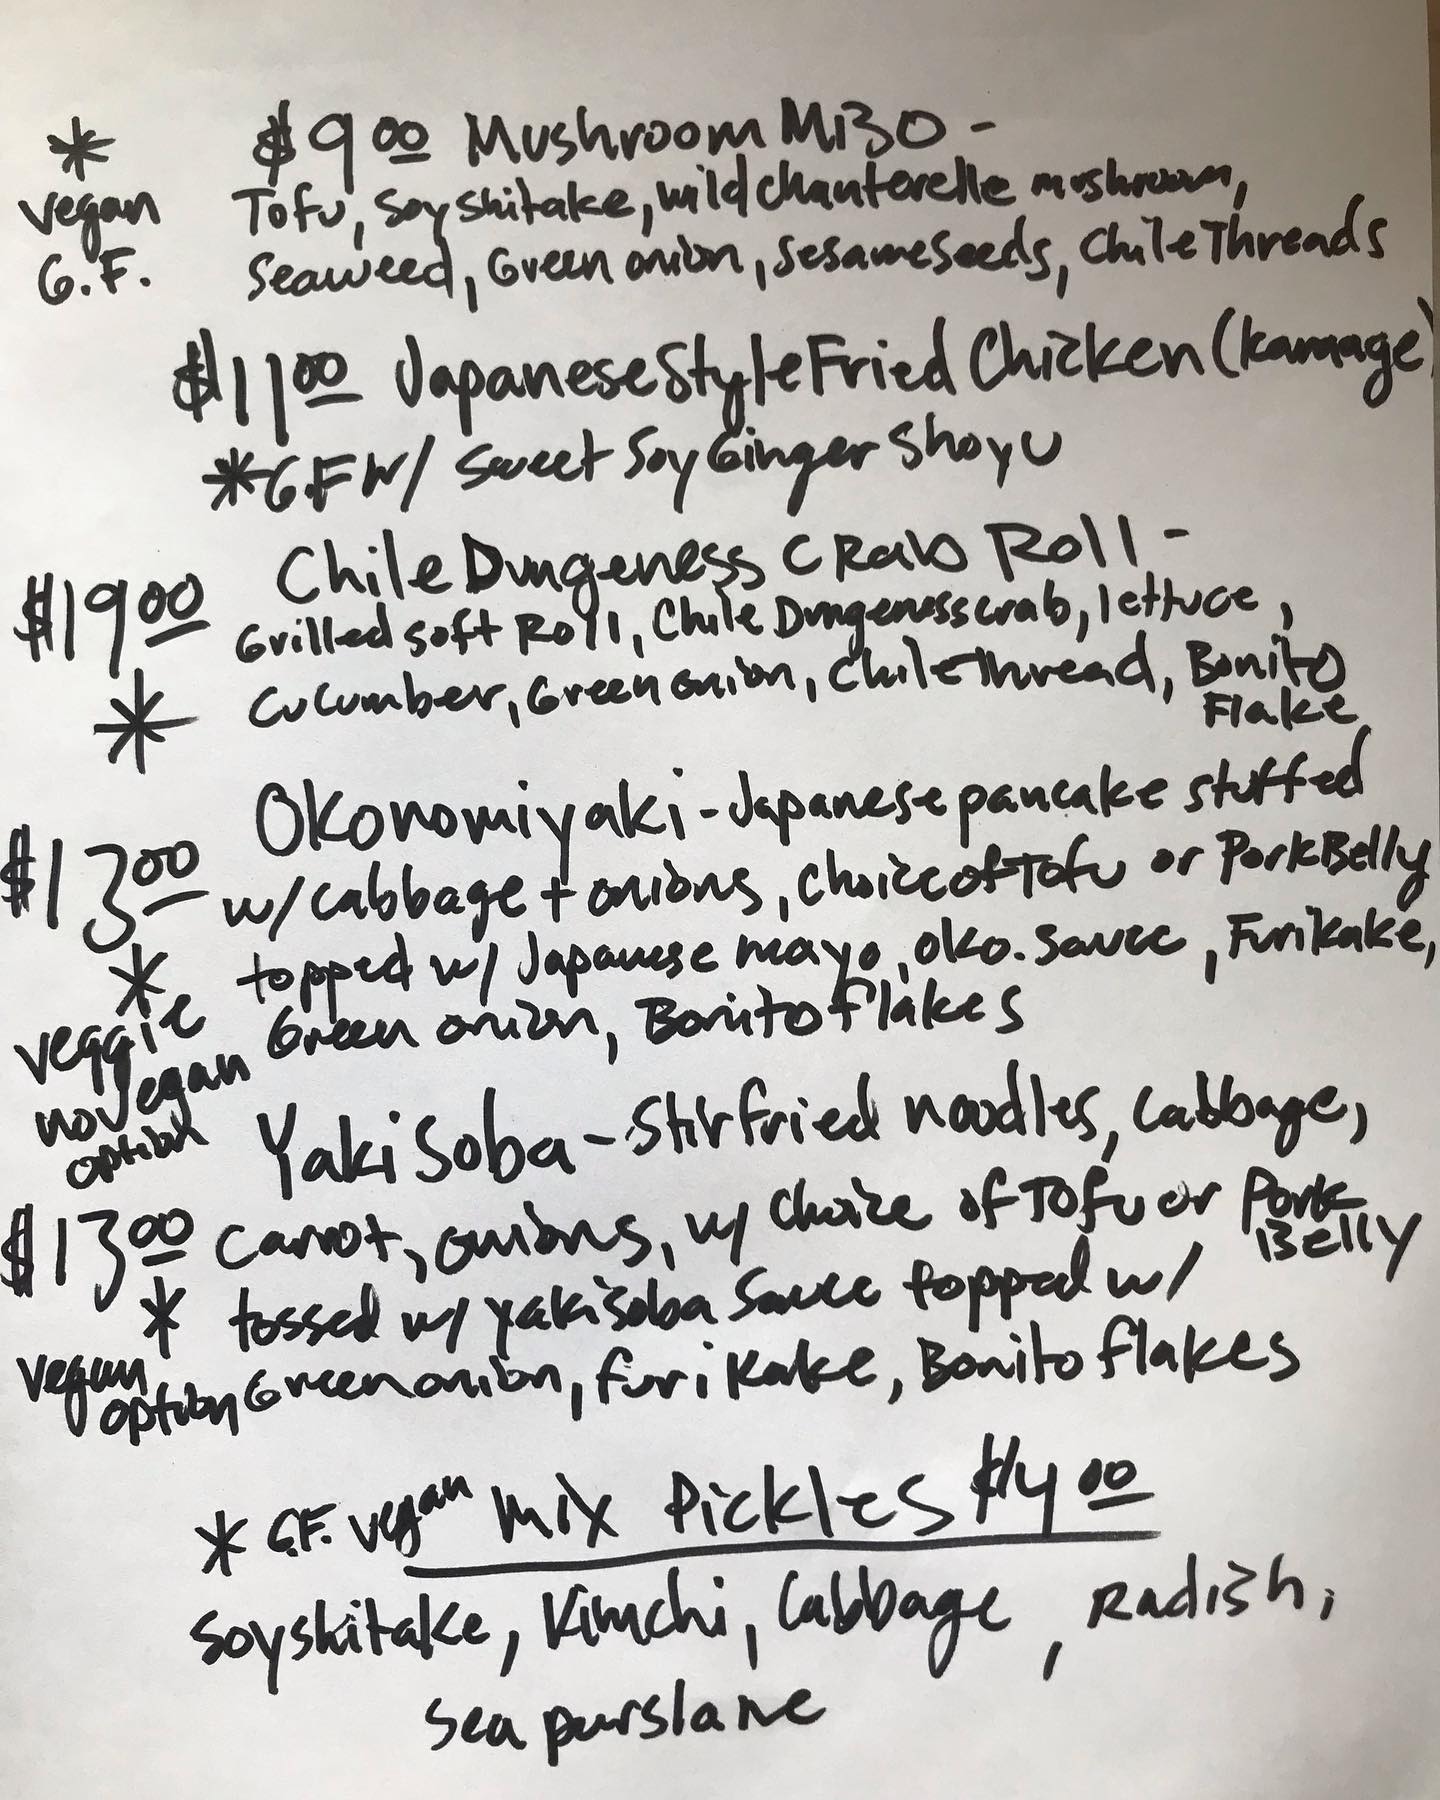 * $9.00 Mushroom Miso -
vegan Tofu, Soy Shitake, wild chanterelle mushroom,
G.F. Seaweed, Green onion, Sesame Seeds, Chile Threads
$11.00 Japanese Style Fried Chicken (karaage)
*G.F W/ Sweet Soy Ginger Shoyu
Chile Dungeness CRab Roll -
$19.00 Grilled Soft Roll, Chile Dungeness crab, lettuce,
* Cucumber, Green onion, Chile Thread, Bonito
Flake
Okonomiyaki - Japanese pancake stuffed
$13.00 w/ cabbage + onions, Choice of Tofu or Pork Belly
* topped w/ Japanese mayo, oko. sauce, Furikake,
veggie Green onion, Bonito flakes
no vegan
option
Yaki Soba - Stir fried noodles, Cabbage,
$13.00 Carrot, onions, w/ choice of Tofu or Pork
Belly
* tossed w/ yakisoba Sauce topped w/
vegan
option Green onion, furikake, Bonito flakes
* G.F. vegan Mix Pickles $4.00
Soy shitake, Kimchi, Cabbage, Radish,
Sea purslane